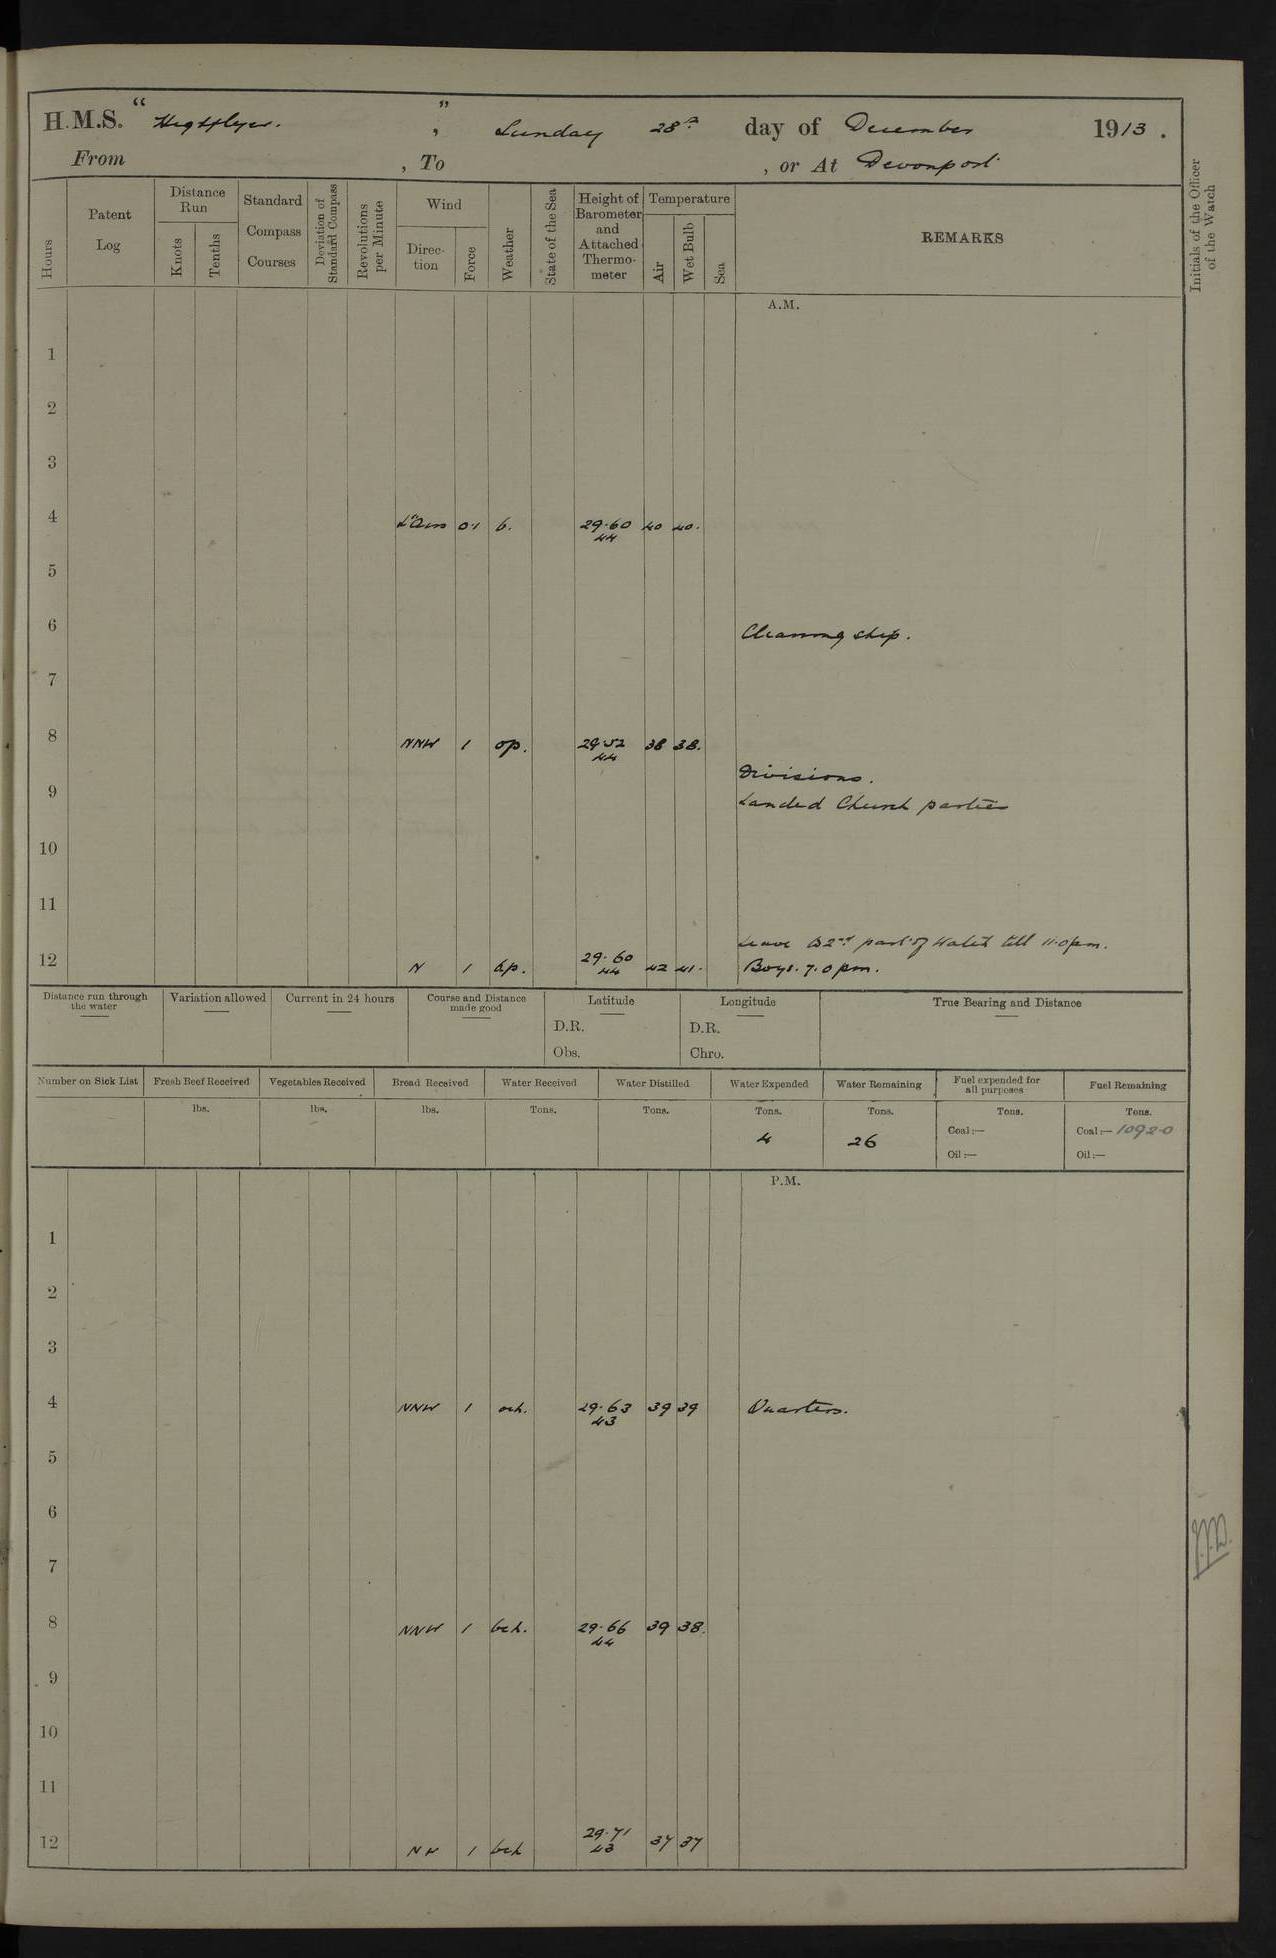 H.M.S. "Highflyer. ", Sunday 28th day of December 1913.
From , To , or At Devonport
Hours
Patent Log
Distance Run
Knots
Tenths
Standard Compass Courses
Deviation of Standard Compass
Revolutions per Minute
Wind
Direc-tion
Force
Weather
State of the Sea
Height of Barometer and Attached Thermo-meter
Temperature
Air
Wet Bulb
Sea
REMARKS
Initials of the Officer of the Watch
A.M.
1
2
3
4 Lt Airs 0.1 b. 29.60 40 40.
44
5
6 Cleaning ship.
7
8 NNW 1 op. 29.52 38 38.
44
Divisions.
9 Landed Church parties
10
11
Leave 2nd part of Watch till 11.0pm.
12 N 1 bp. 29.60 42 41. Boys. 7.0 pm.
44
Distance run through the water
Variation allowed
Current in 24 hours
Course and Distance made good
Latitude
D.R.
Obs.
Longitude
D.R.
Chro.
True Bearing and Distance
Number on Sick List
Fresh Beef Received
Vegetables Received
Bread Received
Water Received
Water Distilled
Water Expended
Water Remaining
Fuel expended for all purposes
Fuel Remaining
lbs. lbs. lbs. Tons. Tons. Tons. Tons. Tons. Tons.
4 26 Coal:— Coal:— 1092.0
Oil:— Oil:—
P.M.
1
2
3
4 NNW 1 och. 29.63 39 39 Quarters.
43
5
6
7
8 NNW 1 bch. 29.66 39 38.
44
9
10
11
12 NW 1 bch 29.71 37 37
43